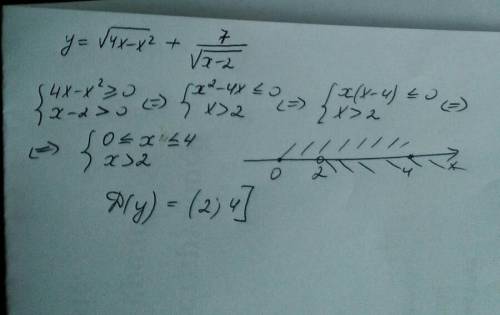 y = √(4x-x²) + 7/√(x-2)
{4x-x²≥0 x-2>0 (=) {x²-4x≤0 x>2 (=) {x(x-4)≤0 x>2 (=)
(=) {0≤x≤4 x>2
0 2 4 x
D(y) = (2; 4]